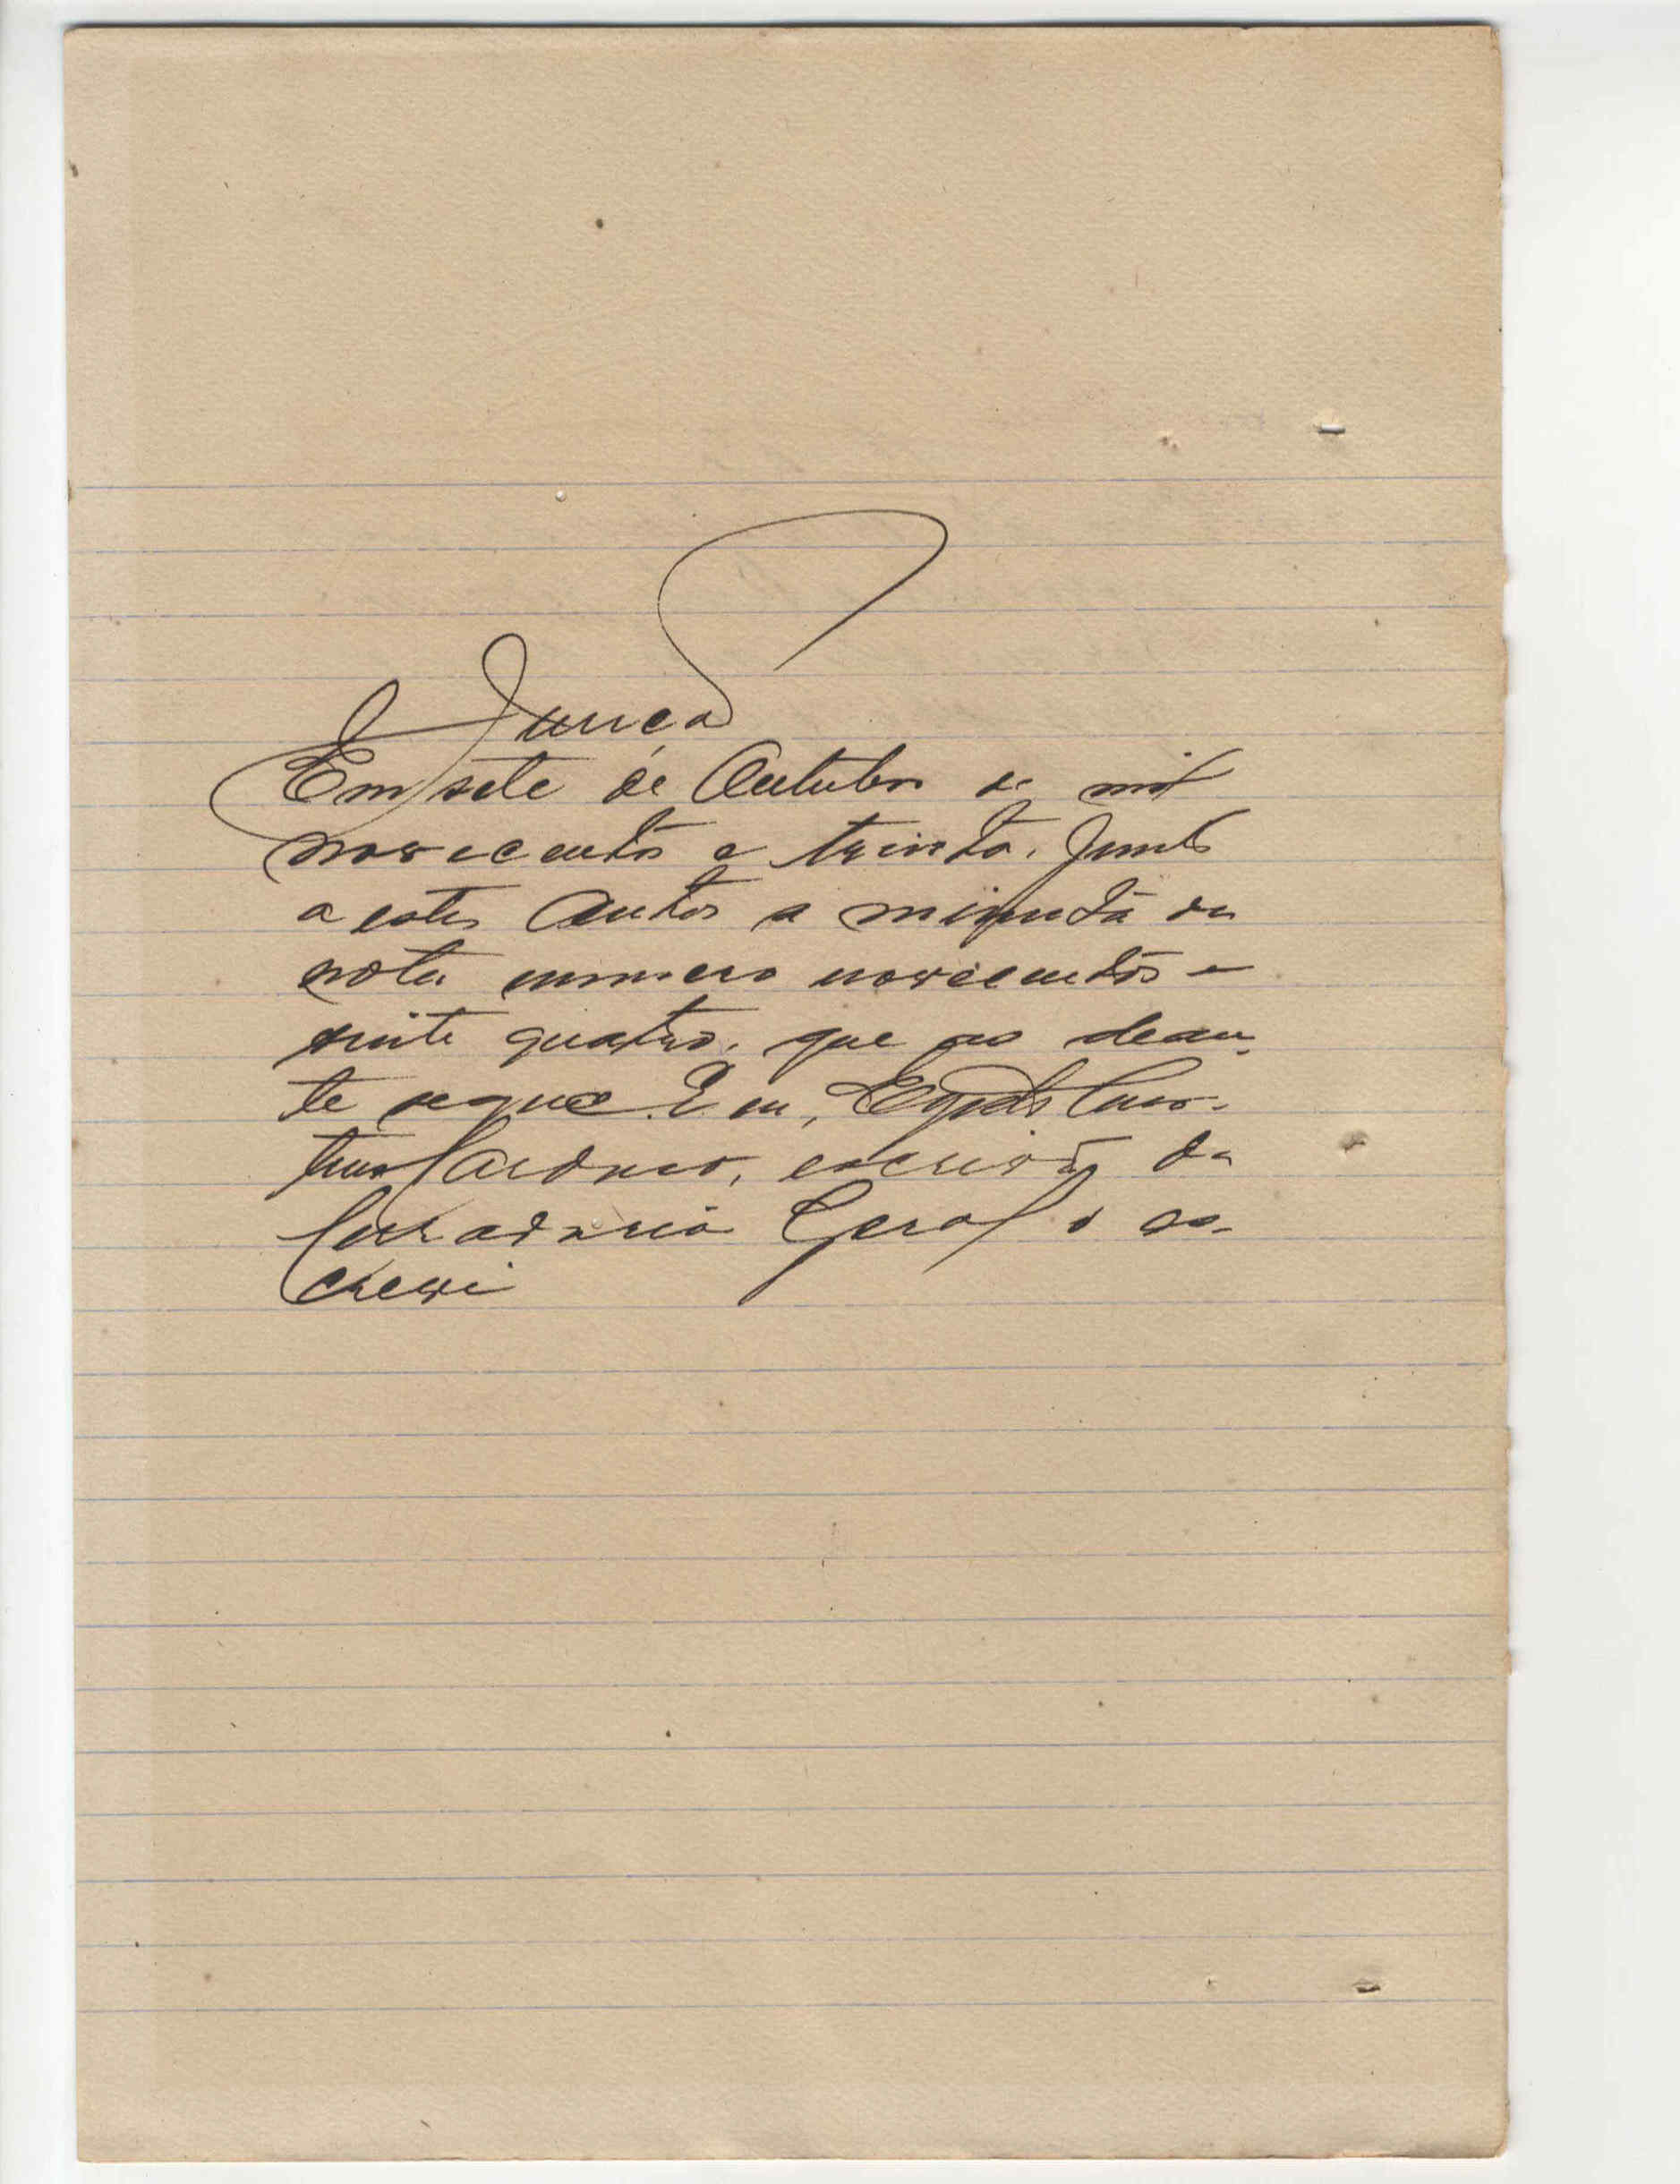 Junção
Em sete de Outubro de mil
novecentos e trinta, junto
a estes Autos a minuta da
nota numero novecentos e
vinte quatro, que ao dean-
te segue. Eu,
Cardoso, escrivão da
Curadoria Geral o es-
crevi